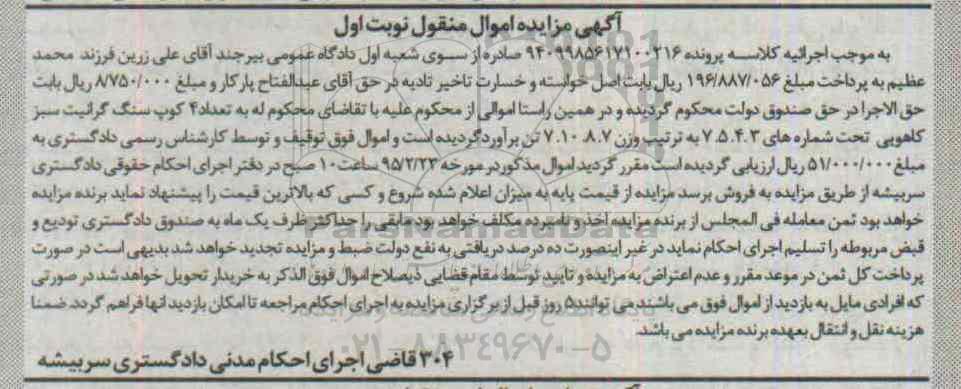 آگهی مزایده اموال منقول نوبت اول
به موجب اجرائیه کلاسه پرونده ۹۴۰۹۹۸۵۶۱۷۱۰۰۲۱۶ صادره از سوی شعبه اول دادگاه عمومی بیرجند آقای علی زرین فرزند محمد
عظیم به پرداخت مبلغ ۱۹۶/۸۸۷/۰۵۶ ریال بابت اصل خواسته و خسارت تاخیر تادیه در حق آقای عبدالفتاح پارکار و مبلغ ۸/۷۵۰/۰۰۰ ریال بابت
حق الاجرا در حق صندوق دولت محکوم گردیده و در همین راستا اموالی از محکوم علیه با تقاضای محکوم له به تعداد ۴ کوپ سنگ گرانیت سبز
کاهویی تحت شماره های ۷.۵.۴.۳ به ترتیب وزن ۷.۱۰.۸.۷ تن برآورد گردیده است و اموال فوق توقیف و توسط کارشناس رسمی دادگستری به
مبلغ ۵۱/۰۰۰/۰۰۰ ریال ارزیابی گردیده است مقرر گردید اموال مذکور در مورخه ۹۵/۲/۲۳ ساعت ۱۰ صبح در دفتر اجرای احکام حقوقی دادگستری
سربیشه از طریق مزایده به فروش برسد مزایده از قیمت پایه به میزان اعلام شده شروع و کسی که بالاترین قیمت را پیشنهاد نماید برنده مزایده
خواهد بود ثمن معامله فی المجلس از برنده مزایده اخذ و نامبرده مکلف خواهد بود مابقی را حداکثر ظرف یک ماه به صندوق دادگستری تودیع و
قبض مربوطه را تسلیم اجرای احکام نماید در غیر اینصورت ده درصد دریافتی به نفع دولت ضبط و مزایده تجدید خواهد شد بدیهی است در صورت
پرداخت کل ثمن در موعد مقرر و عدم اعتراض به مزایده و تایید توسط مقام قضایی ذیصلاح اموال فوق الذکر به خریدار تحویل خواهد شد در صورتی
که افرادی مایل به بازدید از اموال فوق می باشند می توانند ۵ روز قبل از برگزاری مزایده به اجرای احکام مراجعه تا امکان بازدید انها فراهم گردد ضمنا
هزینه نقل و انتقال بعهده برنده مزایده می باشد.
۳۰۴ قاضی اجرای احکام مدنی دادگستری سربیشه
ParsNamadData
۰۲۱-۸۸۳۴۹۶۷۰-۵